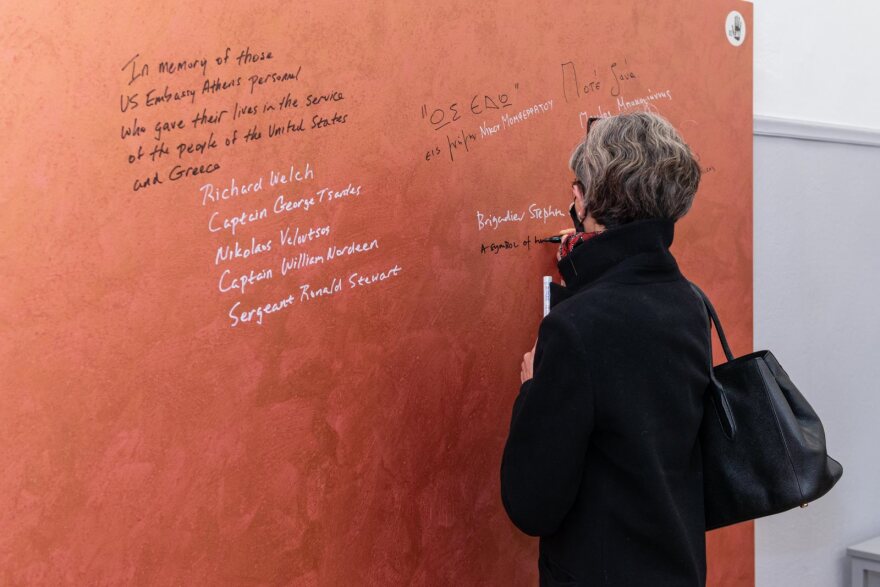 In memory of those
US Embassy Athens personnel
who gave their lives in the service
of the people of the United States
and Greece
Richard Welch
Captain George Tsantes
Nikolaos Veloutsos
Captain William Nordeen
Sergeant Ronald Stewart
"ΩΣ ΕΔΩ"
εις μνήμην ΝΙΚΟΥ ΜΟΜΦΕΡΡΑΤΟΥ
Ποτέ ξανά
Μπακογιάννης
Brigadier Stephen
A symbol of